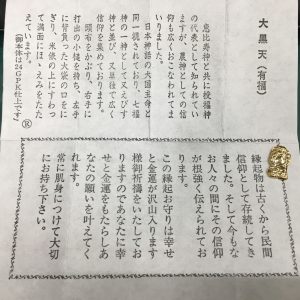 大黒天(有福)
恵比寿神と共に授福神
の代表として知られて
いますが、農神としての信
仰も広くおこなわれてま
いりました。
日本神話の大国主命と
同一視されており、七福
神の一神としてえびす
神と並び、又単独で広く
信仰を集めております。
頭巾をかぶり、右手に
打出の小槌を持ち、左手
に背負った大袋の口をに
ぎり、米俵の上にすわっ
て満面にほゝえみをたた
えています。
(御本体は24GPK仕上です)
縁起物は古くから民間
信仰として存続してき
ました。そして今もな
お人々の間にその信仰
が根強く伝えられてお
ります。
この縁起お守りは幸せ
と金運が沢山入ります
様御祈祷をいたしてお
りますのであなたに幸
せと金運をもたらしあ
なたの願いを叶えてく
れます。
常に肌身につけて大切
にお持ち下さい。